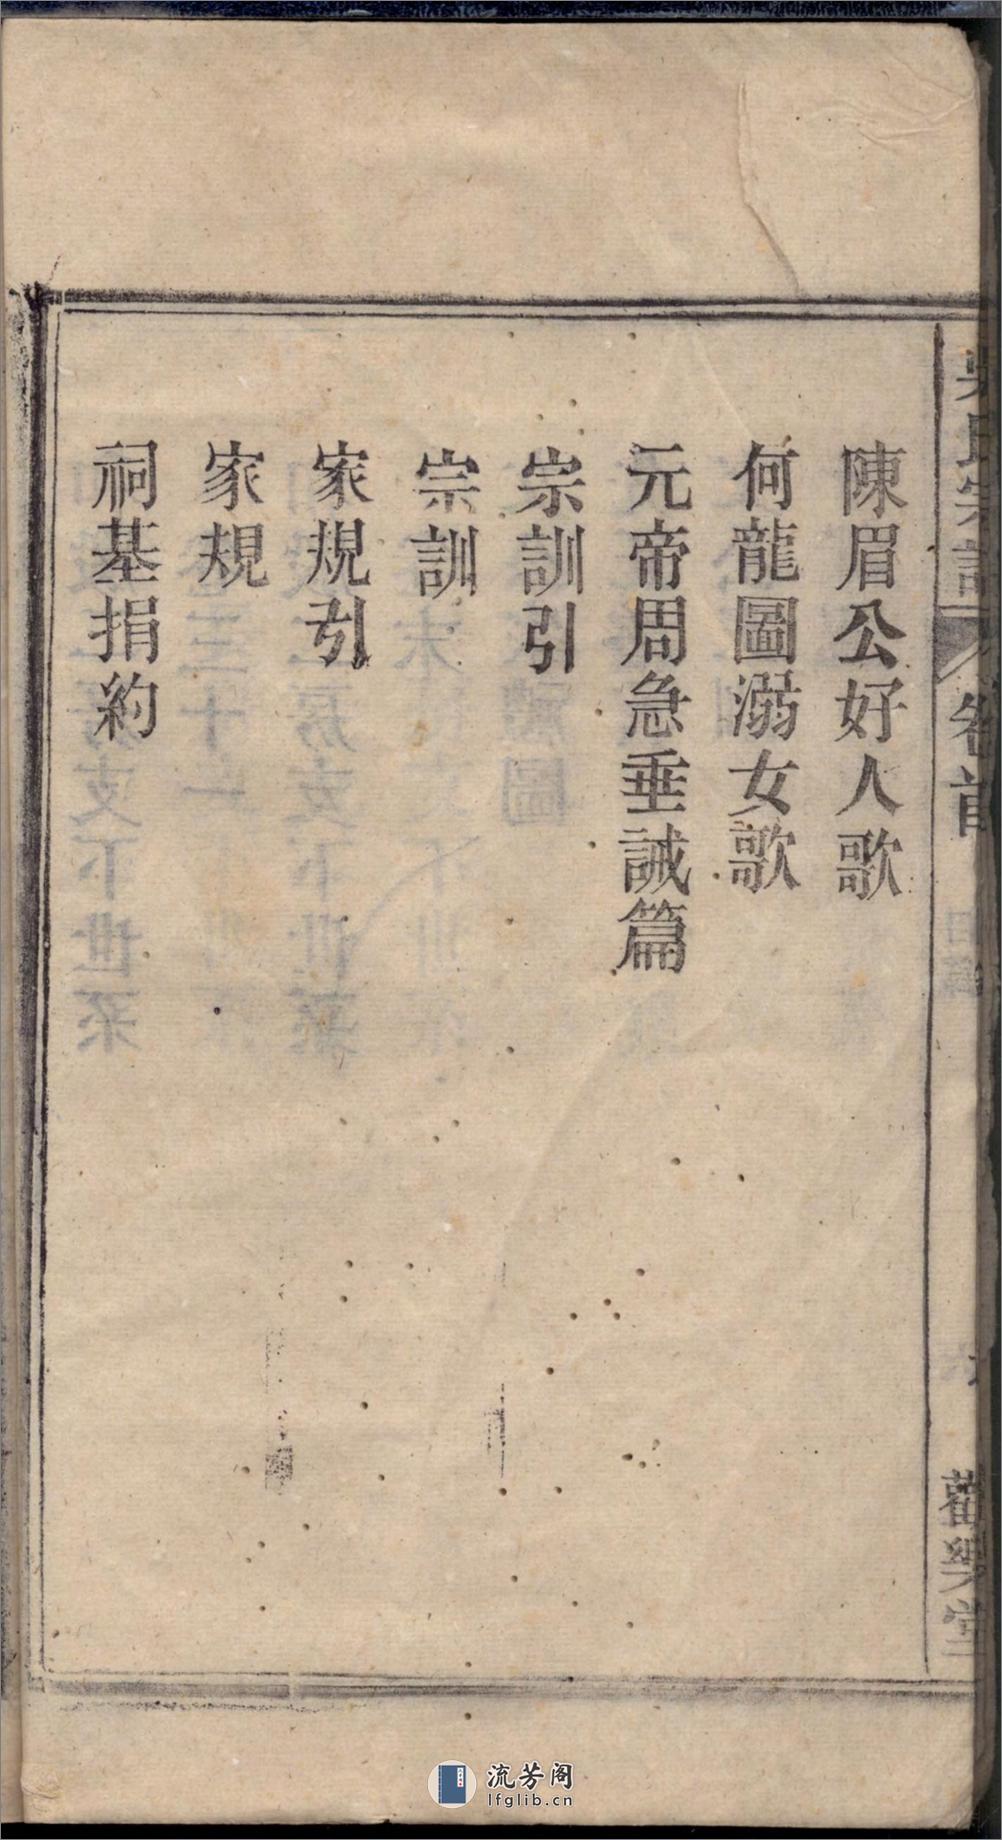 陳眉公好人歌
何龍圖溺女歌
元帝周急垂誡篇
宗訓引
宗訓
家規引
家規
祠基捐約
吳氏宗譜
卷首
觀樂堂
流芳阁
lfglib.cn